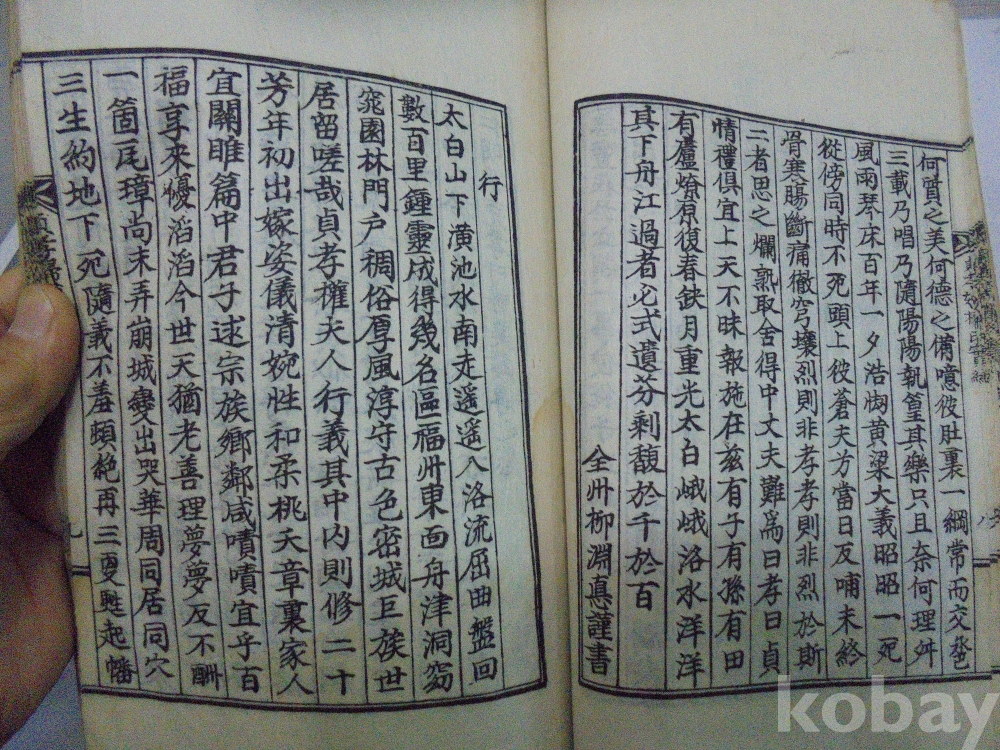 何賢之美何德之備噫彼肚裏一綱常而交
三載乃唱乃隨陽陽執篁其樂只且奈何理舛
風雨琴床百年一夕浩㤼黄粱大義昭昭一死
從傍同時不死頭上彼蒼夫方當日反哺未終
骨寒腸斷痛徹穹壤烈則非孝孝則非烈於斯
二者思之爛熟取舍得中丈夫難爲曰孝曰貞
情禮俱宜上天不昧報施在玆有子有孫有田
有廬燎原復春缺月重光太白峨峨洛水洋洋
其下舟江過者必式遺芬剩馥於千於百
全州柳淵悳謹書
行
太白山下潢池水南走遥遥入洛流屈曲盤回
數百里鍾靈成得幾名區福州東面舟津洞窈
窕園林門戶稠俗厚風淳守古色密城巨族世
居留嗟哉貞孝權夫人行義其中内則修二十
芳年初出嫁姿儀清婉性和柔桃夭章裏家人
宜關雎篇中君子逑宗族鄉鄰咸嘖嘖宜乎百
福享來優滔滔今世天猶老善理夢夢反不酬
一箇瓦璋尚未弄崩城變出哭華周同居同穴
三生約地下死隨義不羞頓絶再三更甦起幡
kobay